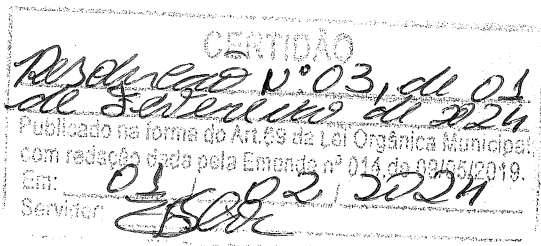 CERTIDÃO
Resolução Nº 03, de 01
de Fevereiro de 2024
Publicado na forma do Art.69 da Lei Orgânica Municipal
com redação dada pela Emenda nº 014 de 09/05/2019.
Em: 01 / 02 / 2024
Servidor: